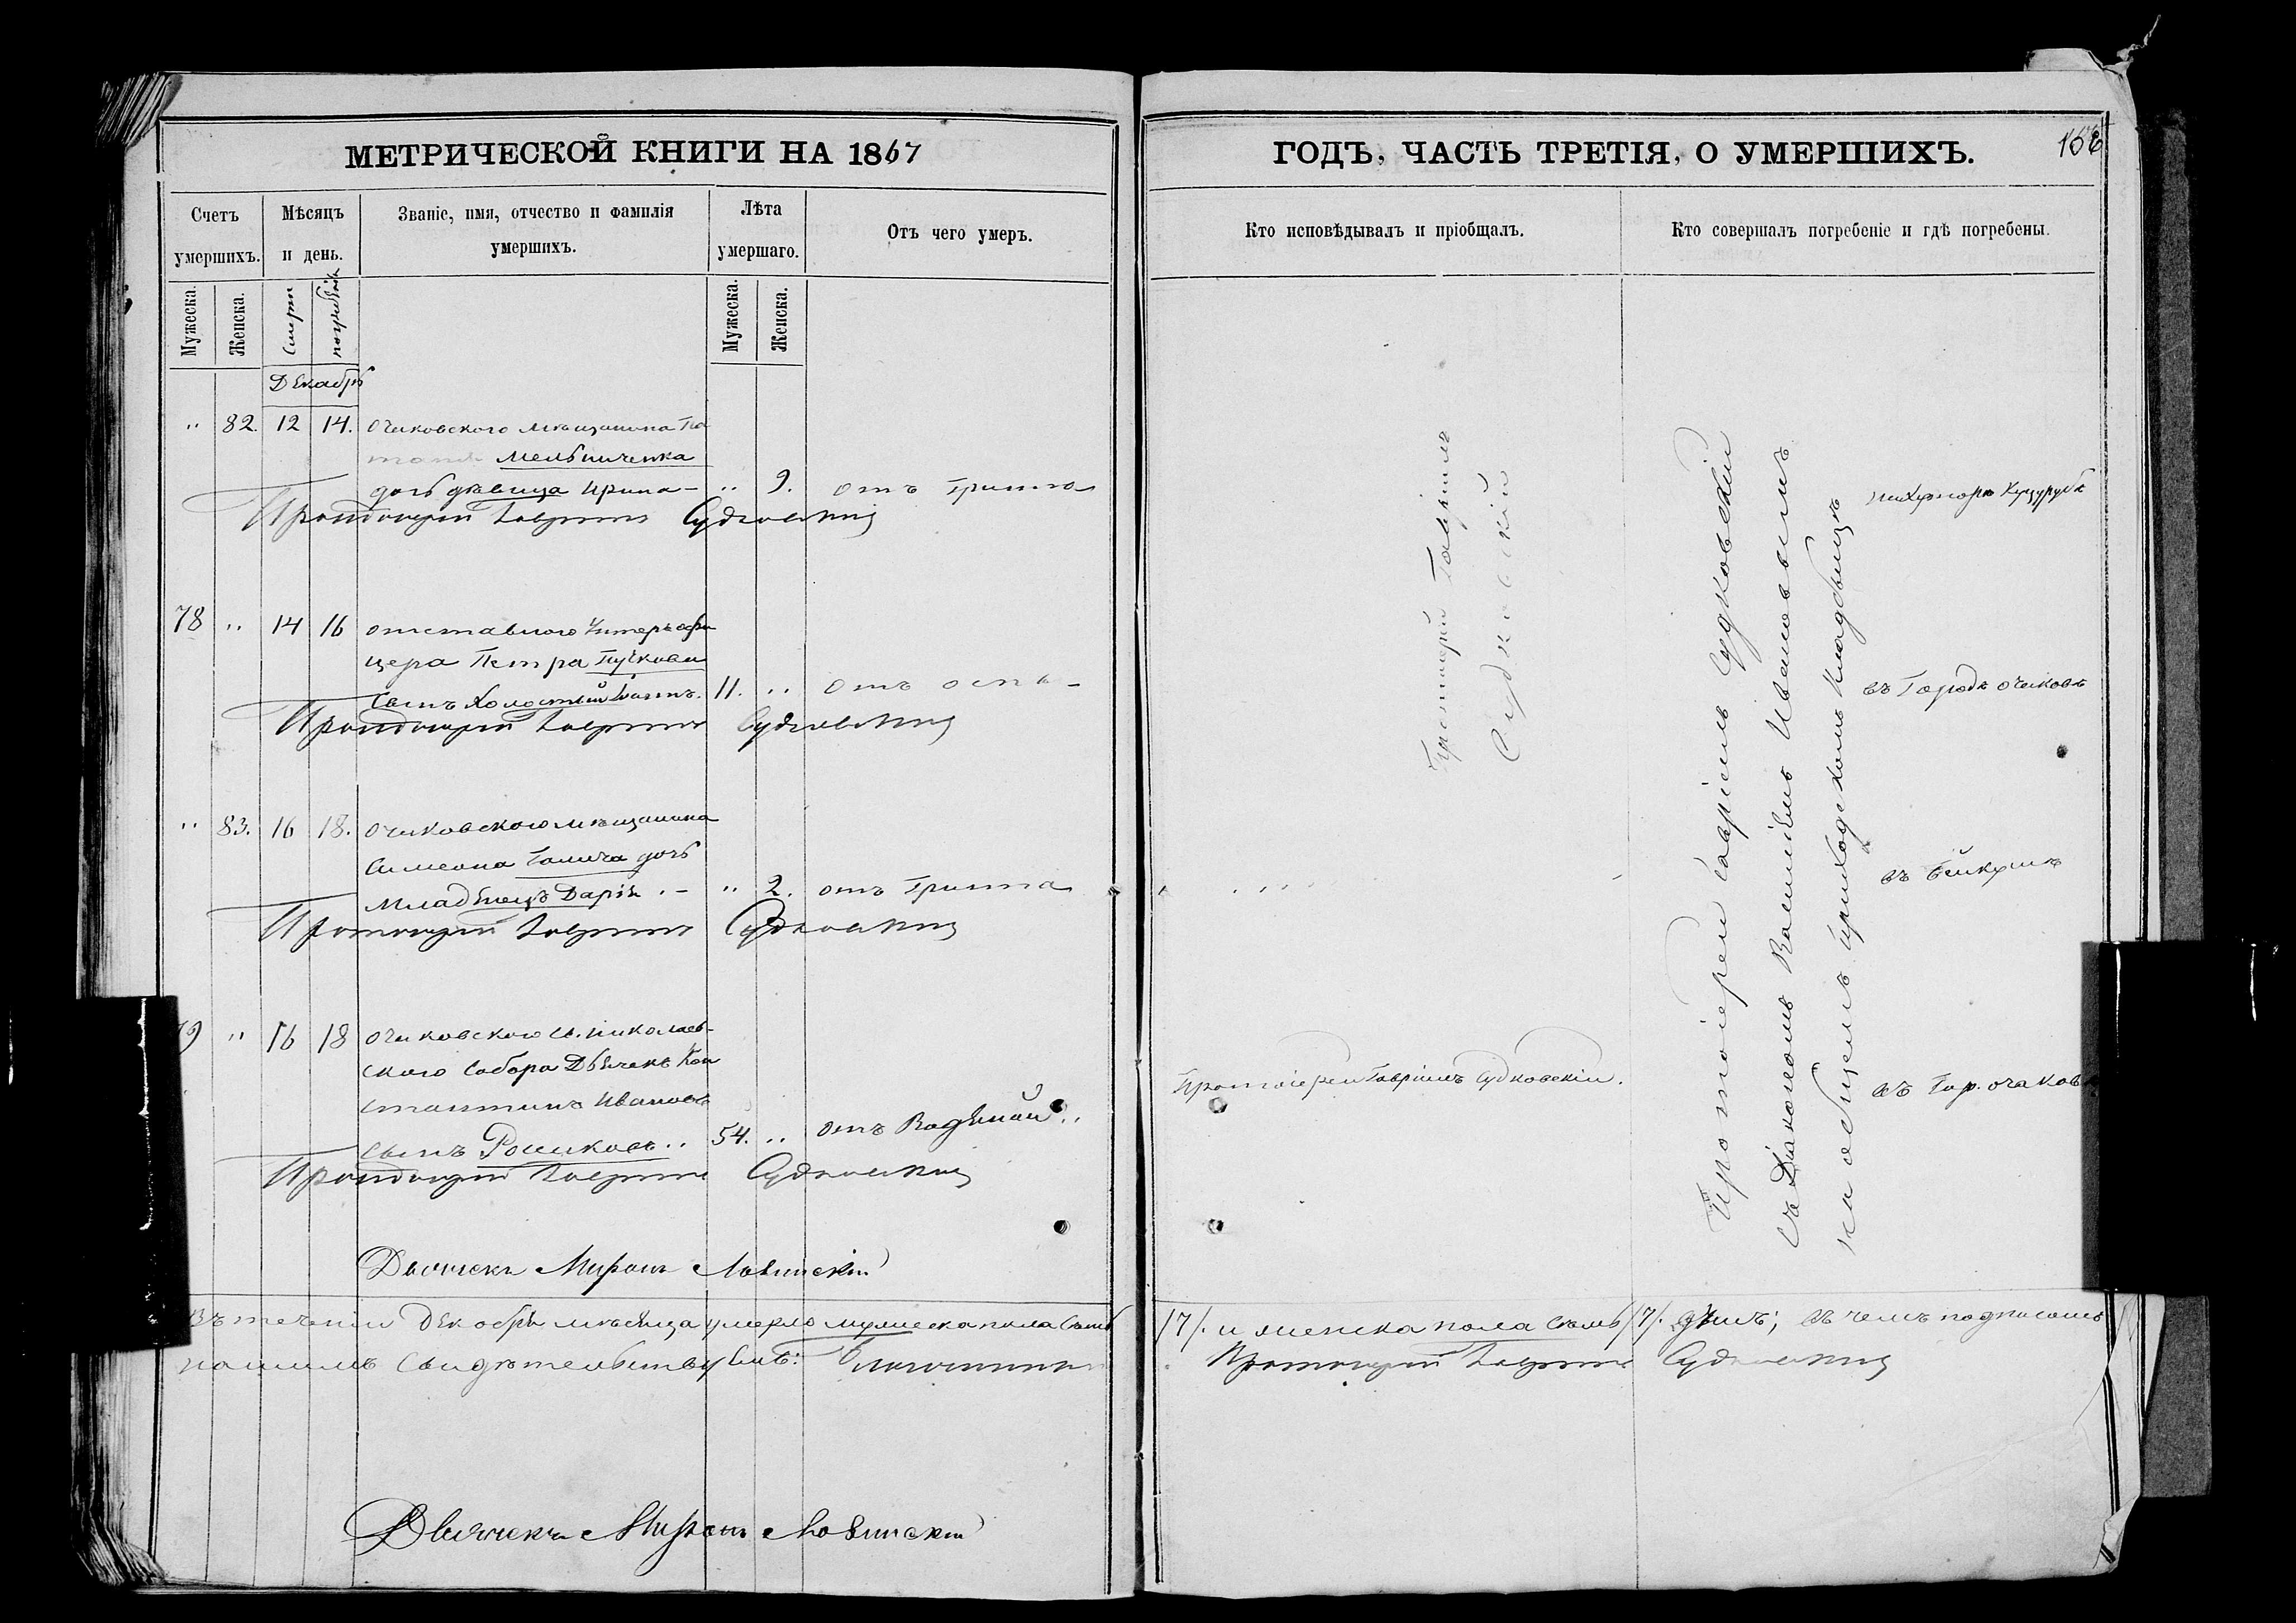 МЕТРИЧЕСКОЙ КНИГИ НА 1867
Счетъ умершихъ.
Мѣсяцъ и день.
Званіе, имя, отчество и фамилія умершихъ.
Лѣта умершаго.
Отъ чего умеръ.
Мужеска.
Женска.
Смерти
погребенія
Мужеска.
Женска.
Декабрь
" 82. 12 14. Очаковского мѣщанина
Мельниченка
дочь дѣвица Ирина - " 9. отъ Гриппа
Протоіерей Гавріилъ Судковскій
78 " 14 16 отставного Унтеръ офи
цера Петра Пучкова
сынъ Холостый 11. " отъ оспы -
Протоіерей Гавріилъ Судковскій
" 83. 16 18. Очаковского мѣщанина
Симеона Галича дочь
Младенецъ Дарія . - " 2. отъ Гриппа
Протоіерей Гавріилъ Судковскій
9 " 16 18 Очаковского Св. Николаев-
ского Собора Дьячекъ Кон
стантинъ Ивановъ
сынъ Рошковъ .. 54. " отъ Водяной ..
Протоіерей Гавріилъ Судковскій
Дьячекъ Миронъ Ловинскій
Въ теченіи Декабря мѣсяца умерло мужеска пола семь
нашимъ свидѣтельствуемъ: Благочинный
Дьячекъ Миронъ Ловинскій
ГОДЪ, ЧАСТЬ ТРЕТІЯ, О УМЕРШИХЪ.
Кто исповѣдывалъ и пріобщалъ.
Кто совершалъ погребеніе и гдѣ погребены.
Протоіерей Гавріилъ
Судковскій
Протоіерей Гавріилъ Судковскій
съ Діакономъ Василіемъ Ивановымъ
на общемъ приходскомъ кладбищѣ
на хуторѣ Куцурубѣ
въ Городѣ Очаковѣ
въ Бейкушѣ
Протоіерей Гавріилъ Судковскій.
въ Гор. Очаковѣ
/7/. и женска пола семь /7/. душъ; въ чемъ подписомъ
Протоіерей Гавріилъ Судковскій